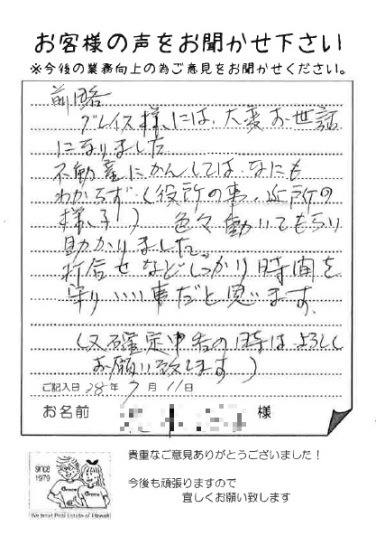 お客様の声をお聞かせ下さい
※今後の業務向上の為ご意見をお聞かせください。
前略
グレイス様には、大変お世話
になりました
不動産にかんしては、なにも
わからず、(役所の事、近所の
様子) 色々動いてもらい
助かりました。
打合せなどしっかり時間を
守りいい事だと思います。
(又確定申告の時はよろしく
お願い致します)
ご記入日 28年 7月 11日
お名前 様
since
1979
貴重なご意見ありがとうございました!
今後も頑張りますので
宜しくお願い致します